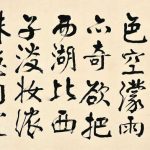 色空濛雨
亦奇欲把
西湖比西
子淡妝濃